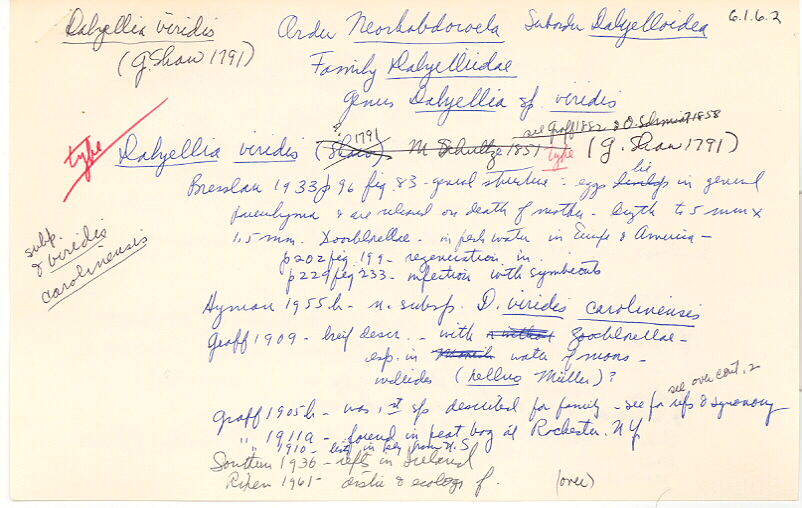 Dalyellia viridis
(G. Shaw 1791)
Order Neorhabdocoela Suborder Dalyelloidea
6.1.6.2
Family Dalyelliidae
Genus Dalyellia sp. viridis
see Graff 1882 & O. Schmidt 1858
? 1791
type
Dalyellia viridis (Shaw) M. Schultze 1851 type (G. Shaw 1791)
Bresslau 1933 p 96 fig. 83 - general structure - eggs develop lie in general
parenchyma & are released on death of mother - length to 5 mm x
1.5 mm. Zoochlorellae - in fresh water in Europe & America -
p 202 fig 199 - regeneration in.
p 229 fig 233 - infection with symbionts
subsp.
& viridis
carolinensis
Hyman 1955b - n. subsp. D. viridis carolinensis
Graff 1909 - brief descr. - with zoochlorellae -
esp. in water of moors -
includes (helluo Müller)?
see over cont. 2
Graff 1905b - was 1st sp described for family - see for refs & synonomy
" 1911a - found in peat bog at Rochester, N.Y.
" 1910 - lists in key from U.S.
Southern 1936 - repts in Ireland
Rixen 1961 - distrib & ecology of.
(over)